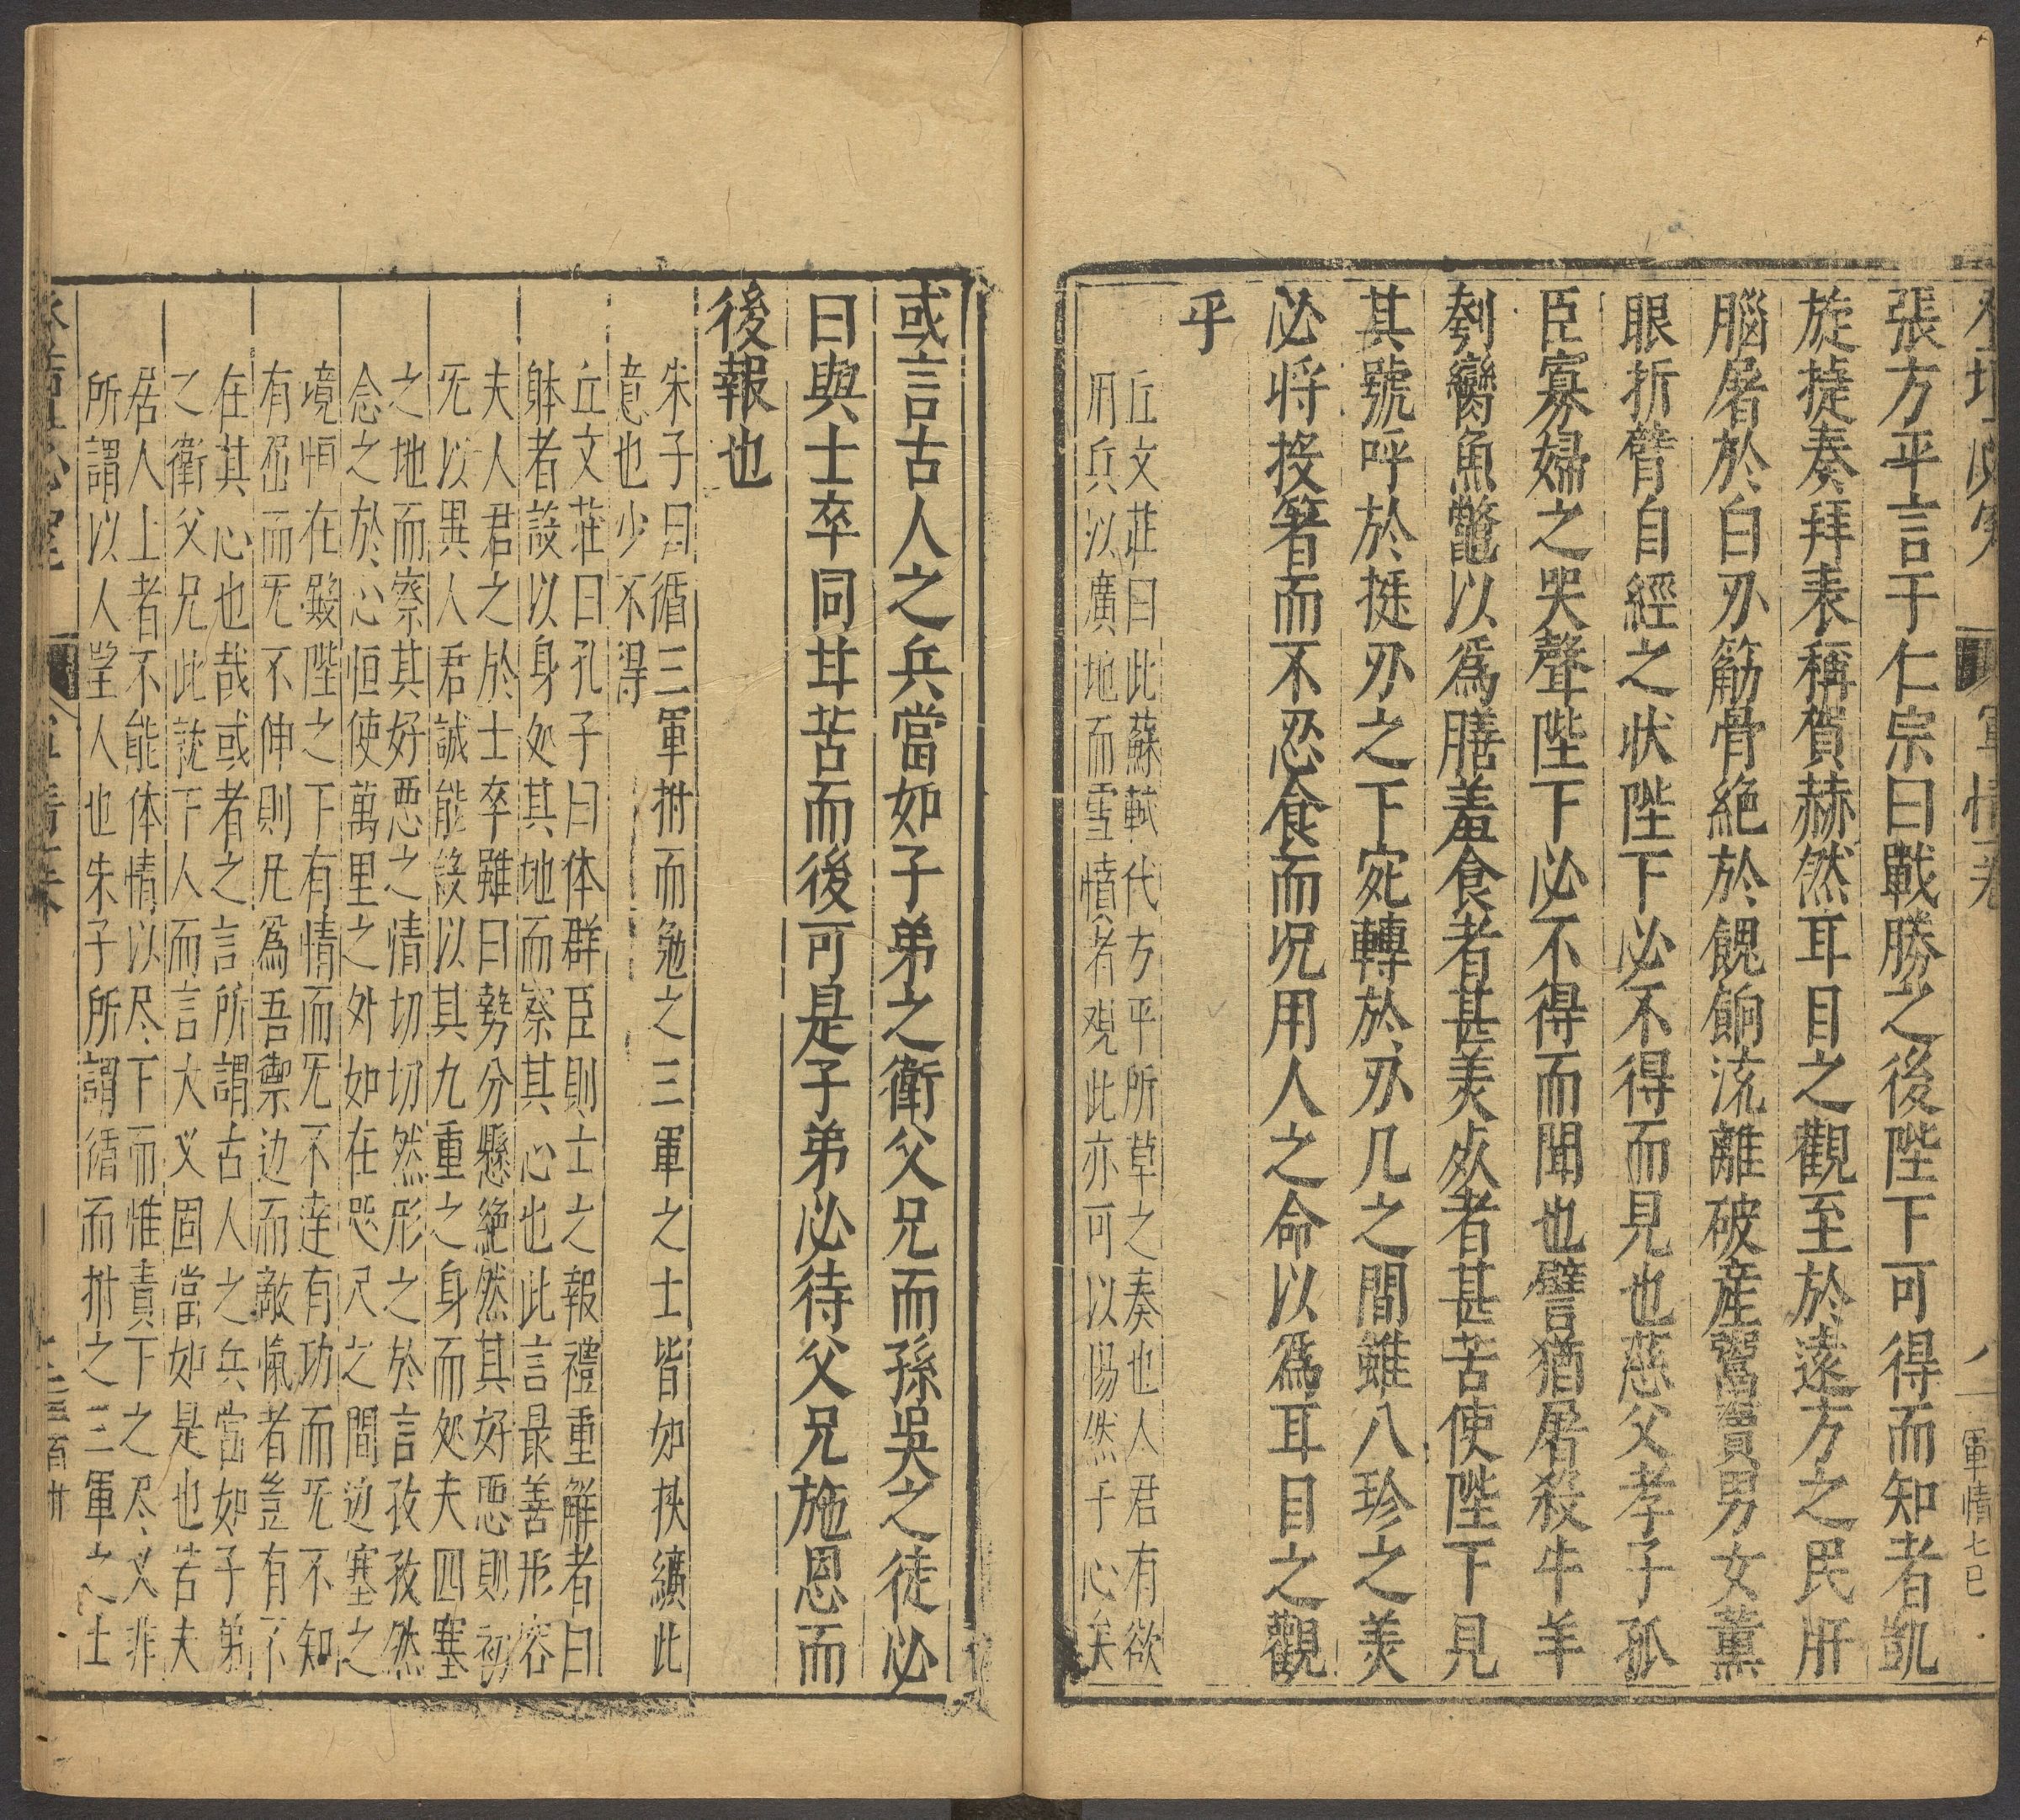 軍情一卷
八
軍情七巳
張方平言于仁宗曰戰勝之後陛下可得而知者凱
旋捷奏拜表稱賀赫然耳目之觀至於遠方之民肝
腦屠於白刃筋骨絕於餽餉流離破産鬻賣男女薰
眼折臂自經之狀陛下必不得而見也慈父孝子孤
臣寡婦之哭聲陛下必不得而聞也譬猶屠殺牛羊
刳臠魚鼈以爲膳羞食者甚美死者甚苦使陛下見
其號呼於挺刃之下宛轉於刃几之間雖八珍之羙
必将投箸而不忍食而况用人之命以爲耳目之觀
乎
丘文莊曰此蘇軾代方平所草之奏也人君有欲
用兵以廣地而雪憤者观此亦可以惕然于心矣
或言古人之兵當如子弟之衛父兄而孫吳之徒必
曰與士卒同甘苦而後可是子弟必待父兄施恩而
後報也
朱子曰循三軍拊而勉之三軍之士皆如挾纊此
意也少不得
丘文莊曰孔子曰体群臣則士之報禮重解者曰
躰者設以身处其地而察其心也此言最善形容
夫人君之於士卒雖曰勢分懸絶然其好惡則初
旡以異人君誠能設以其九重之身而处夫四塞
之地而察其好惡之情切切然形之於言孜孜然
念之於心恒使萬里之外如在咫尺之間边塞之
境恒在殿陛之下有情而旡不達有功而旡不知
有寃而旡不伸則凡爲吾禦边而敵愾者豈有不
在其心也哉或者之言所謂古人之兵當如子弟
之衛父兄此就下人而言大义固當如是也若夫
居人上者不能体情以尽下而惟責下之尽义非
所謂以人望人也朱子所謂循而拊之三軍之士
軍情一卷